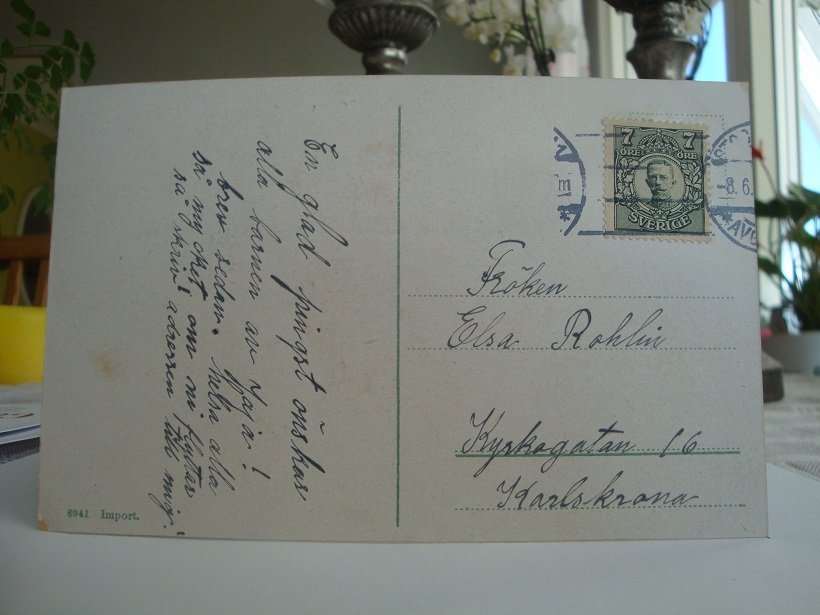 En glad pingst önskas
alla barnen av Jaja!
brev sedan. helsa alla
så mycket om ni flyttar
så skriv adressen till mig!
7 7
ÖRE ÖRE
SVERIGE
8.6.
Fröken
Elsa Rohlin
Kyrkogatan 16
Karlskrona
6941 Import.